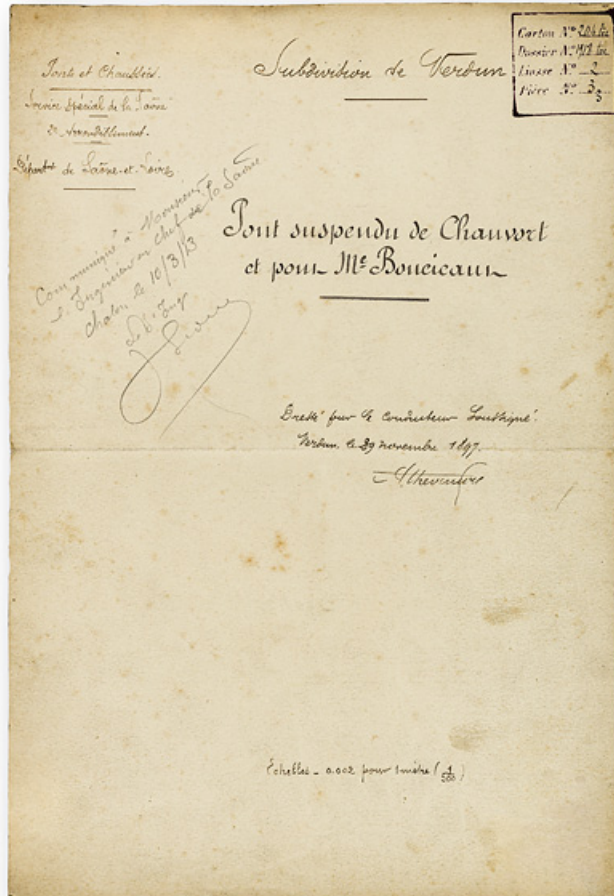 Ponts et Chaussées.
Service spécial de la Saône
2e Arrondissement.
Départnt de Saône-et-Loire.
Subdivision de Verdun
Carton No 204 bis
Dossier No
Liasse No 2
Pièce No 3
Communiqué à Monsieur
l'Ingénieur en Chef de la Saône
Chalon, le 10/3/13
Pont suspendu de Chauvort
et pour Me Boucicaut
Dressé par le Conducteur Soussigné.
Verdun, le 29 novembre 1897.
Echelles - 0.002 pour 1 mètre (1/500)